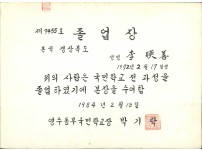 제7455호 졸업장
본적 경상북도
성명 李 暎 善
1972년 2월 17일생
위의 사람은 국민학교 전 과정을
졸업하였기에 본장을 수여함
1984년 2월 10일
영주동부국민학교장 박 기